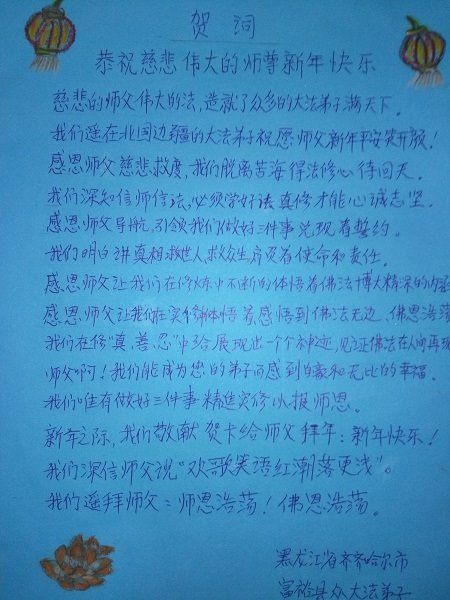 贺词
恭祝慈悲伟大的师尊新年快乐
慈悲的师父伟大的法，造就了众多的大法弟子满天下。
我们遥在北国边疆的大法弟子祝愿师父新年平安笑开颜！
感恩师父慈悲救度，我们脱离苦海得法修心待回天。
我们深知信师信法，必须学好法真修才能心诚志坚。
感恩师父导航，引领我们做好三件事兑现着誓约。
我们明白讲真相救世人，救众生肩负着使命和责任。
感恩师父让我们在修炼中不断的体悟着佛法博大精深的内涵
感恩师父让我们在实修体悟着感悟到佛法无边、佛恩浩荡
我们在修“真、善、忍”中展现出一个个神迹，见证佛法在人间再现
师父啊！我们能成为您的弟子而感到自豪和无比的幸福。
我们唯有做好三件事精進实修以报师恩。
新年之际，我们敬献贺卡给师父拜年：新年快乐！
我们深信师父说“欢歌笑语红潮落更浅”。
我们遥拜师父：师恩浩荡！佛恩浩荡。
黑龙江省齐齐哈尔市
富裕县众大法弟子